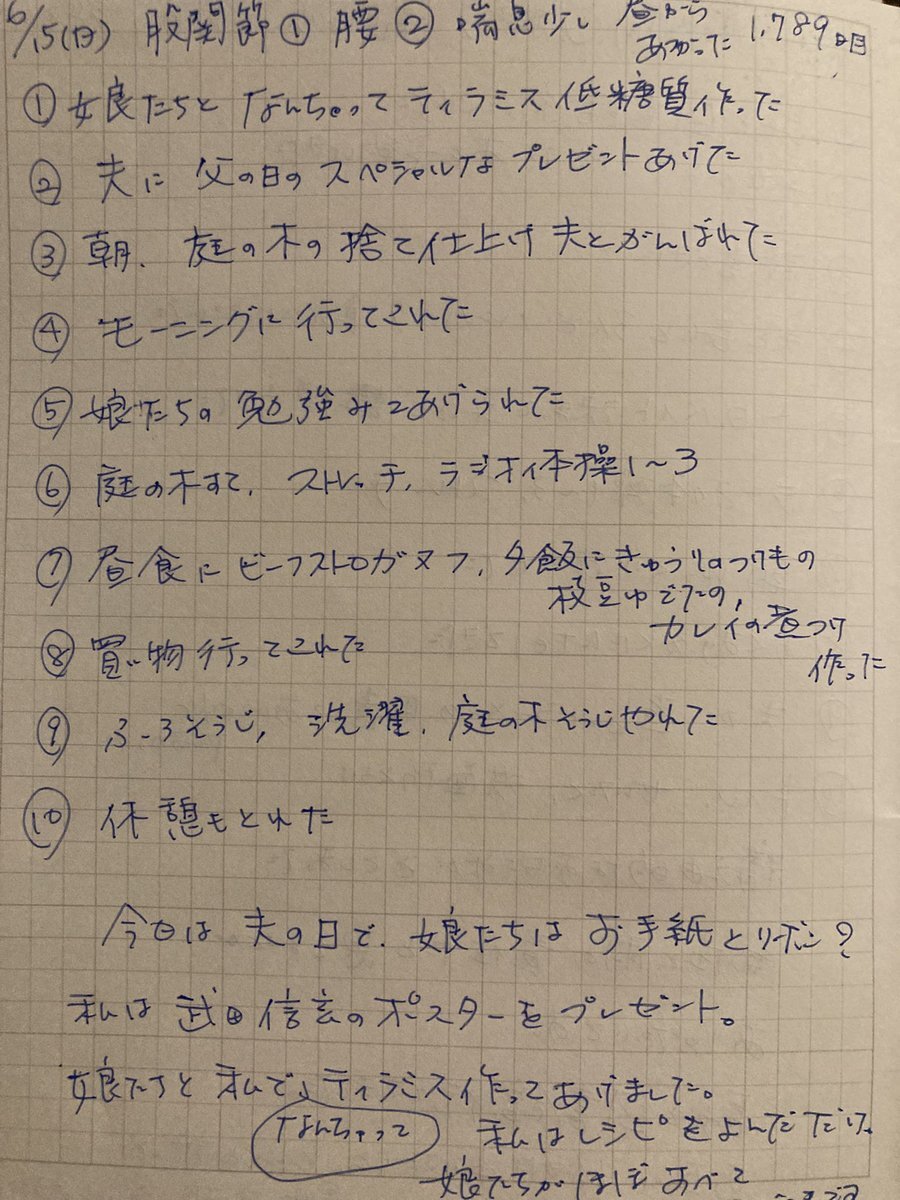 6/15(日) 股関節① 腰② 喘息少し 昼から
あつかった 1,789日目
① 娘たちとなんちゃってティラミス低糖質作った
② 夫に父の日のスペシャルなプレゼントあげた
③ 朝、庭の木の捨て仕上げ夫とがんばれた
④ モーニングに行ってこれた
⑤ 娘たちの勉強みてあげられた
⑥ 庭の木すて、ストレッチ、ラジオ体操1〜3
⑦ 昼食にビーフストロガヌフ、夕飯にきゅうりのつけもの
枝豆ゆでたの、
カレイの煮つけ
作った
⑧ 買い物行ってこれた
⑨ ふーろそうじ、洗濯、庭の木そうじやれた
⑩ 休憩もとれた
今日は夫の日で、娘たちはお手紙とリボン?
私は武田信玄のポスターをプレゼント。
娘たちと私で、ティラミス作ってあげました。
なんちゃって 私はレシピをよんだだけ、
娘たちがほぼすべて